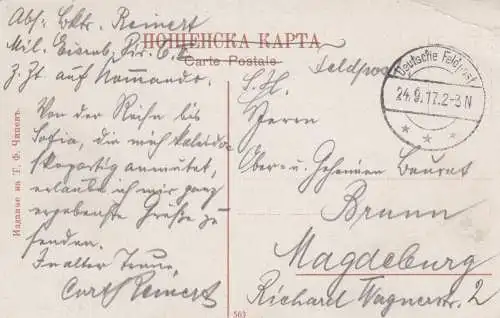 Abs: Bktr. Reinert
Mil. Eisenb. Dir. 6
Z. Zt auf Kommando.
ПОЩЕНСКА КАРТА
Carte Postale
Feldpost
Deutsche Feldpost
24.9.17.2-3N
* * *
Von der Reise bis
Sofia, die mich kaleido-
skopartig anmutet,
erlaube ich mir ganz
ergebenste Grüße zu
senden.
In alter Treue
Curt Reinert
S. H.
Herrn
Ober- u. Geheimen Baurat
Brunn
Magdeburg
Richard Wagnerstr. 2
Издание на Т. Ф. Чипевъ.
563